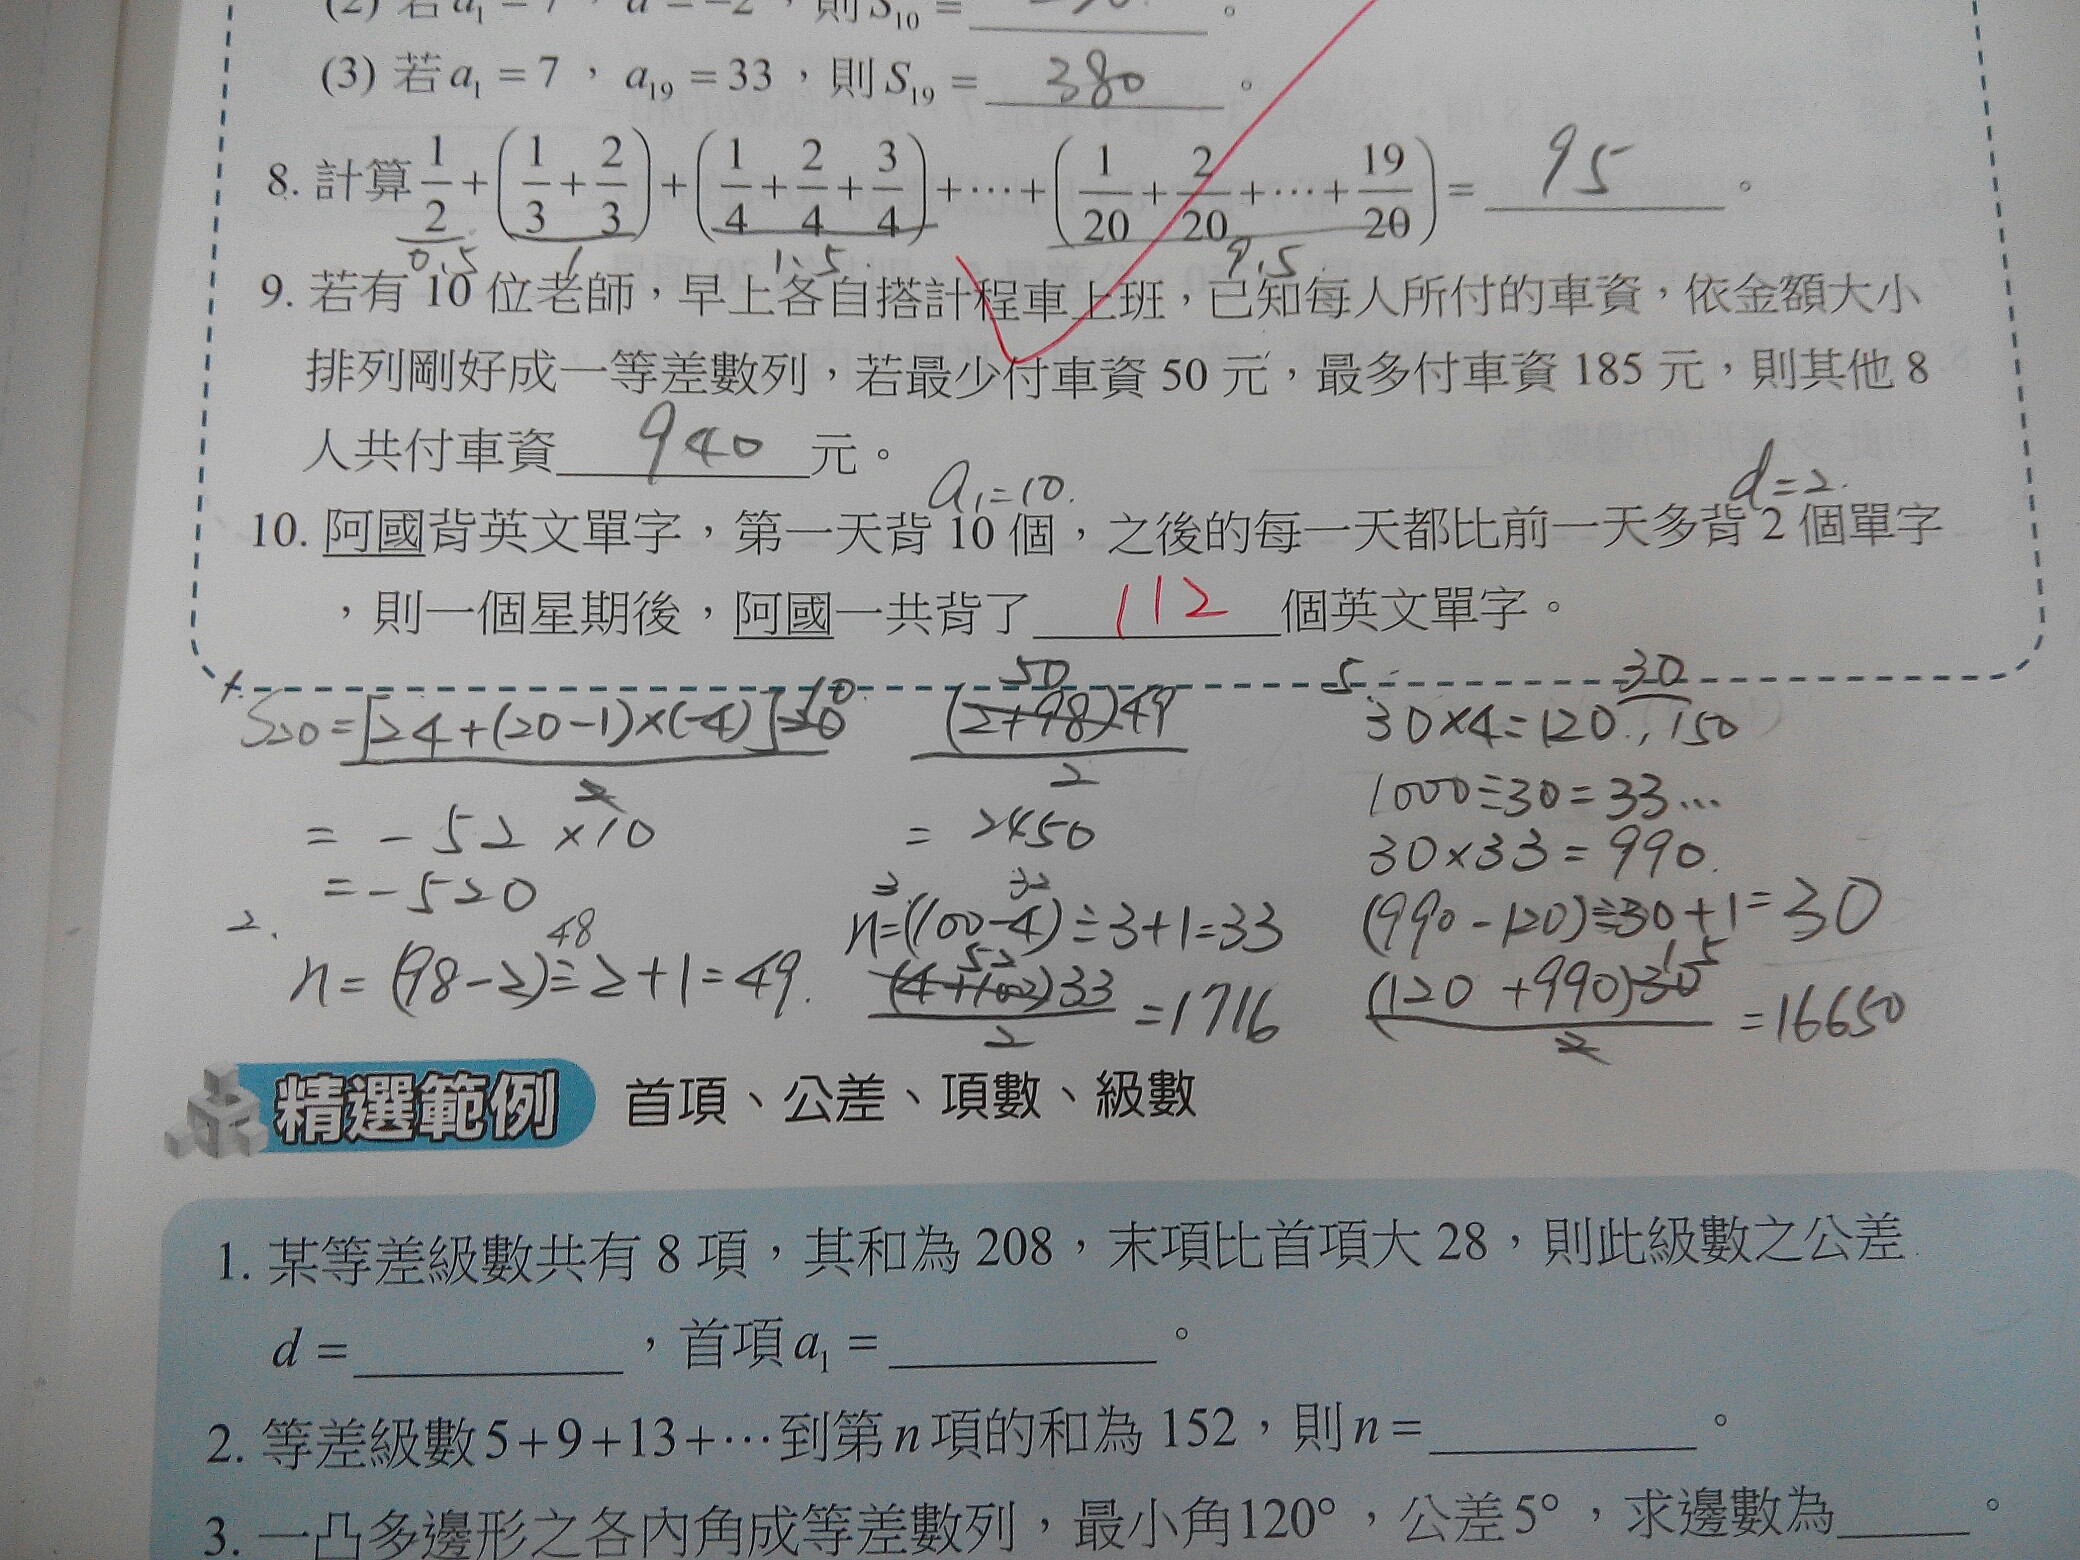 (2) 若 a₁ = 7 , d = −2 , 則 S₁₀ = 。
(3) 若 a₁ = 7 , a₁₉ = 33 , 則 S₁₉ = 380 。
8. 計算 1/2 + (1/3 + 2/3) + (1/4 + 2/4 + 3/4) + ⋯ + (1/20 + 2/20 + ⋯ + 19/20) = 95 。
0.5 1 1.5 9.5
9. 若有 10 位老師，早上各自搭計程車上班，已知每人所付的車資，依金額大小
排列剛好成一等差數列，若最少付車資 50 元，最多付車資 185 元，則其他 8
人共付車資 940 元。
a₁=10. d=2.
10. 阿國背英文單字，第一天背 10 個，之後的每一天都比前一天多背 2 個單字
，則一個星期後，阿國一共背了 112 個英文單字。
1. S₂₀ = [24+(20−1)×(−4)]20 10 / 2
= −52 ×10
= −520
2. n = (98−2)÷2+1=49. 48
50 (2+98)49 / 2
= 2450
3. n=(100−4)÷3+1=33 32
52 (4+100)33 / 2 = 1716
5. 30×4=120 . , 150 30
1000÷30=33…
30×33=990.
(990−120)÷30+1=30
(120+990)30 15 / 2 = 16650
精選範例 首項、公差、項數、級數
1. 某等差級數共有 8 項，其和為 208，末項比首項大 28，則此級數之公差
d = ，首項 a₁ = 。
2. 等差級數 5+9+13+⋯到第 n 項的和為 152，則 n = 。
3. 一凸多邊形之各內角成等差數列，最小角120°，公差5°，求邊數為 。